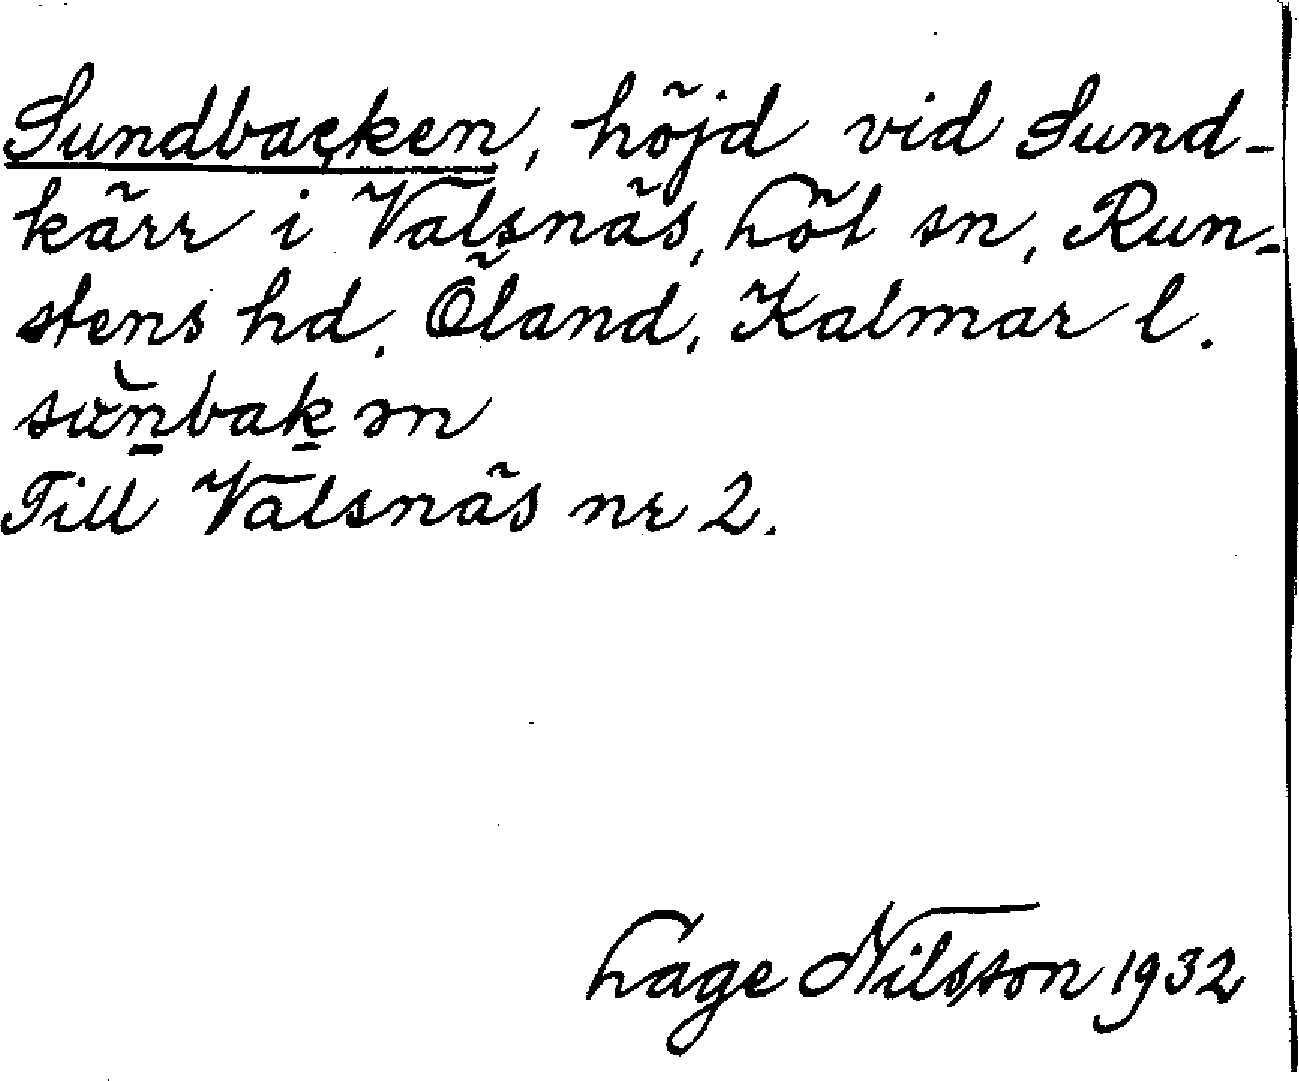 Sundbacken, höjd vid Sund-
kärr i Valsnäs, Löt sn, Run-
stens hd, Öland, Kalmar l.
Till Valsnäs nr 2.
Lage Nilsson 1932